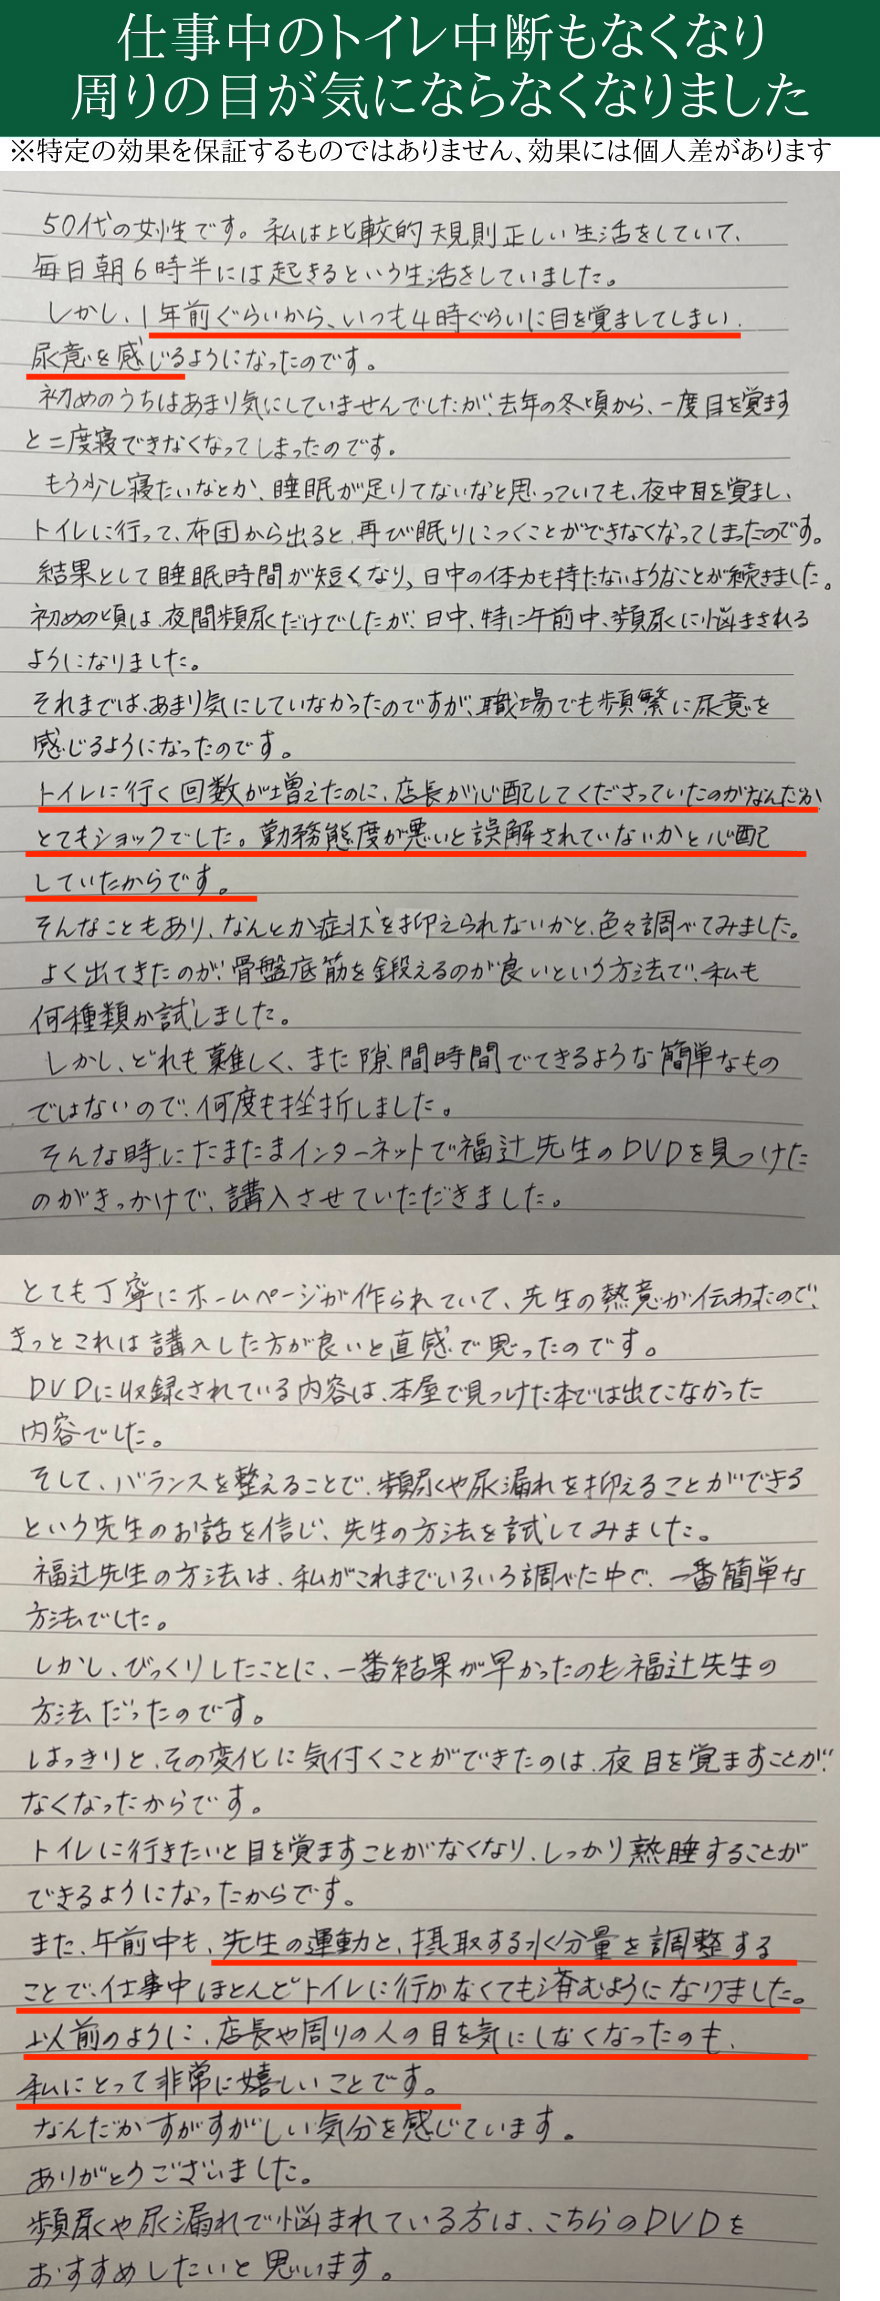 仕事中のトイレ中断もなくなり
周りの目が気にならなくなりました
※特定の効果を保証するものではありません、効果には個人差があります
50代の女性です。私は比較的規則正しい生活をしていて、
毎日朝6時半には起きるという生活をしていました。
しかし、1年前ぐらいから、いつも4時ぐらいに目を覚ましてしまい、
尿意を感じるようになったのです。
初めのうちはあまり気にしていませんでしたが、去年の冬頃から、一度目を覚ます
と二度寝できなくなってしまったのです。
もう少し寝たいなとか、睡眠が足りてないなと思っていても、夜中目を覚まし、
トイレに行って、布団から出ると、再び眠りにつくことができなくなってしまったのです。
結果として睡眠時間が短くなり、日中の体力も持たないようなことが続きました。
初めの頃は、夜間頻尿だけでしたが、日中、特に午前中、頻尿に悩まされる
ようになりました。
それまでは、あまり気にしていなかったのですが、職場でも頻繁に尿意を
感じるようになったのです。
トイレに行く回数が増えたのに、店長が心配してくださっていたのがなんだか
とてもショックでした。勤務態度が悪いと誤解されていないかと心配
していたからです。
そんなこともあり、なんとか症状を抑えられないかと、色々調べてみました。
よく出てきたのが、骨盤底筋を鍛えるのが良いという方法で、私も
何種類か試しました。
しかし、どれも難しく、また隙間時間でできるような簡単なもの
ではないので、何度も挫折しました。
そんな時にたまたまインターネットで福辻先生のDVDを見つけた
のがきっかけで、購入させていただきました。
とても丁寧にホームページが作られていて、先生の熱意が伝わたので、
きっとこれは購入した方が良いと直感で思ったのです。
DVDに収録されている内容は、本屋で見つけた本では出てこなかった
内容でした。
そして、バランスを整えることで、頻尿や尿漏れを抑えることができる
という先生のお話を信じ、先生の方法を試してみました。
福辻先生の方法は、私がこれまでいろいろ調べた中で、一番簡単な
方法でした。
しかし、びっくりしたことに、一番結果が早かったのも福辻先生の
方法だったのです。
はっきりと、その変化に気付くことができたのは、夜目を覚ますことが
なくなったからです。
トイレに行きたいと目を覚ますことがなくなり、しっかり熟睡することが
できるようになったからです。
また、午前中も、先生の運動と、摂取する水分量を調整する
ことで、仕事中ほとんどトイレに行かなくても済むようになりました。
以前のように、店長や周りの人の目を気にしなくなったのも、
私にとって非常に嬉しいことです。
なんだかすがすがしい気分を感じています。
ありがとうございました。
頻尿や尿漏れで悩まれている方は、こちらのDVDを
おすすめしたいと思います。